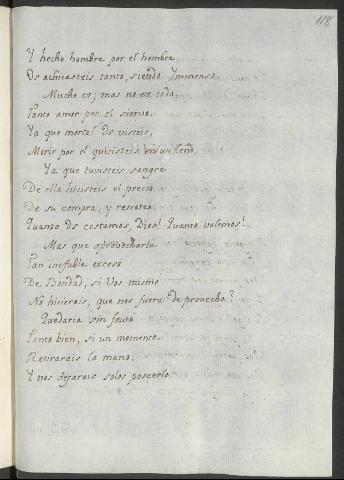 118
Y hecho hombre por el hombre
Os achicasteis tanto, siendo Ymmenso.
Mucho es; mas no es todo
Tanto amor por el siervo.
Ya que mortal os visteis,
Morir por el quisisteis en un Leño,
Ya que tuvisteis sangre
De ella hicisteis el precio
De su compra, y rescate.
Quanto os costamos, Dios! Quanto valemos!
Mas que aprovecharia
Tan inefable exceso
De Bondad, si Vos mismo
No hicierais, que nos fuera de provecho?
Quedaria sin fruto
Tanto bien, si un momento
Retirarais la mano,
Y nos dejarais solos poseerlo.